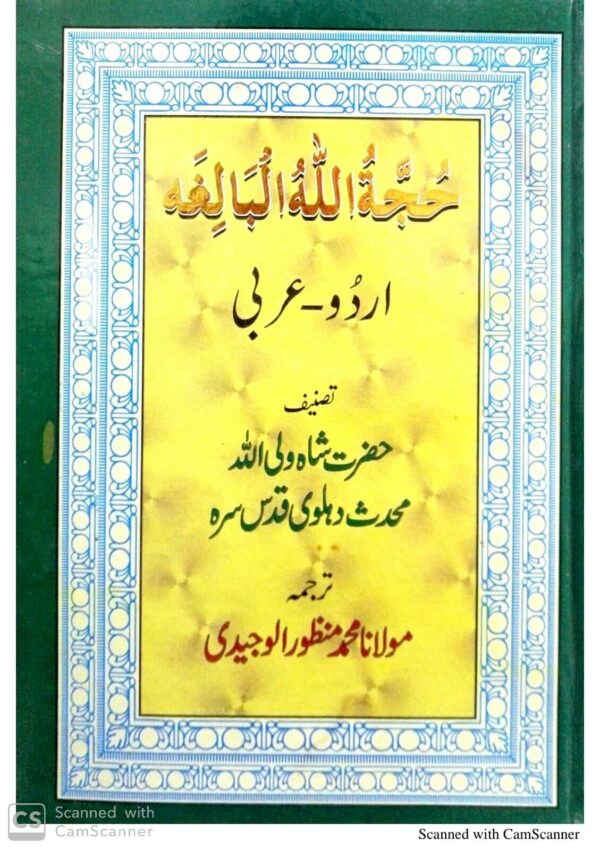 حُجَّةُ اللّٰهِ الْبَالِغَه
اردُو - عربی
تصنیف
حضرت شاہ ولی اللہ
محدث دہلوی قدس سرہ
ترجمہ
مولانا محمد منظور الوجیدی
CS Scanned with
CamScanner
Scanned with CamScanner